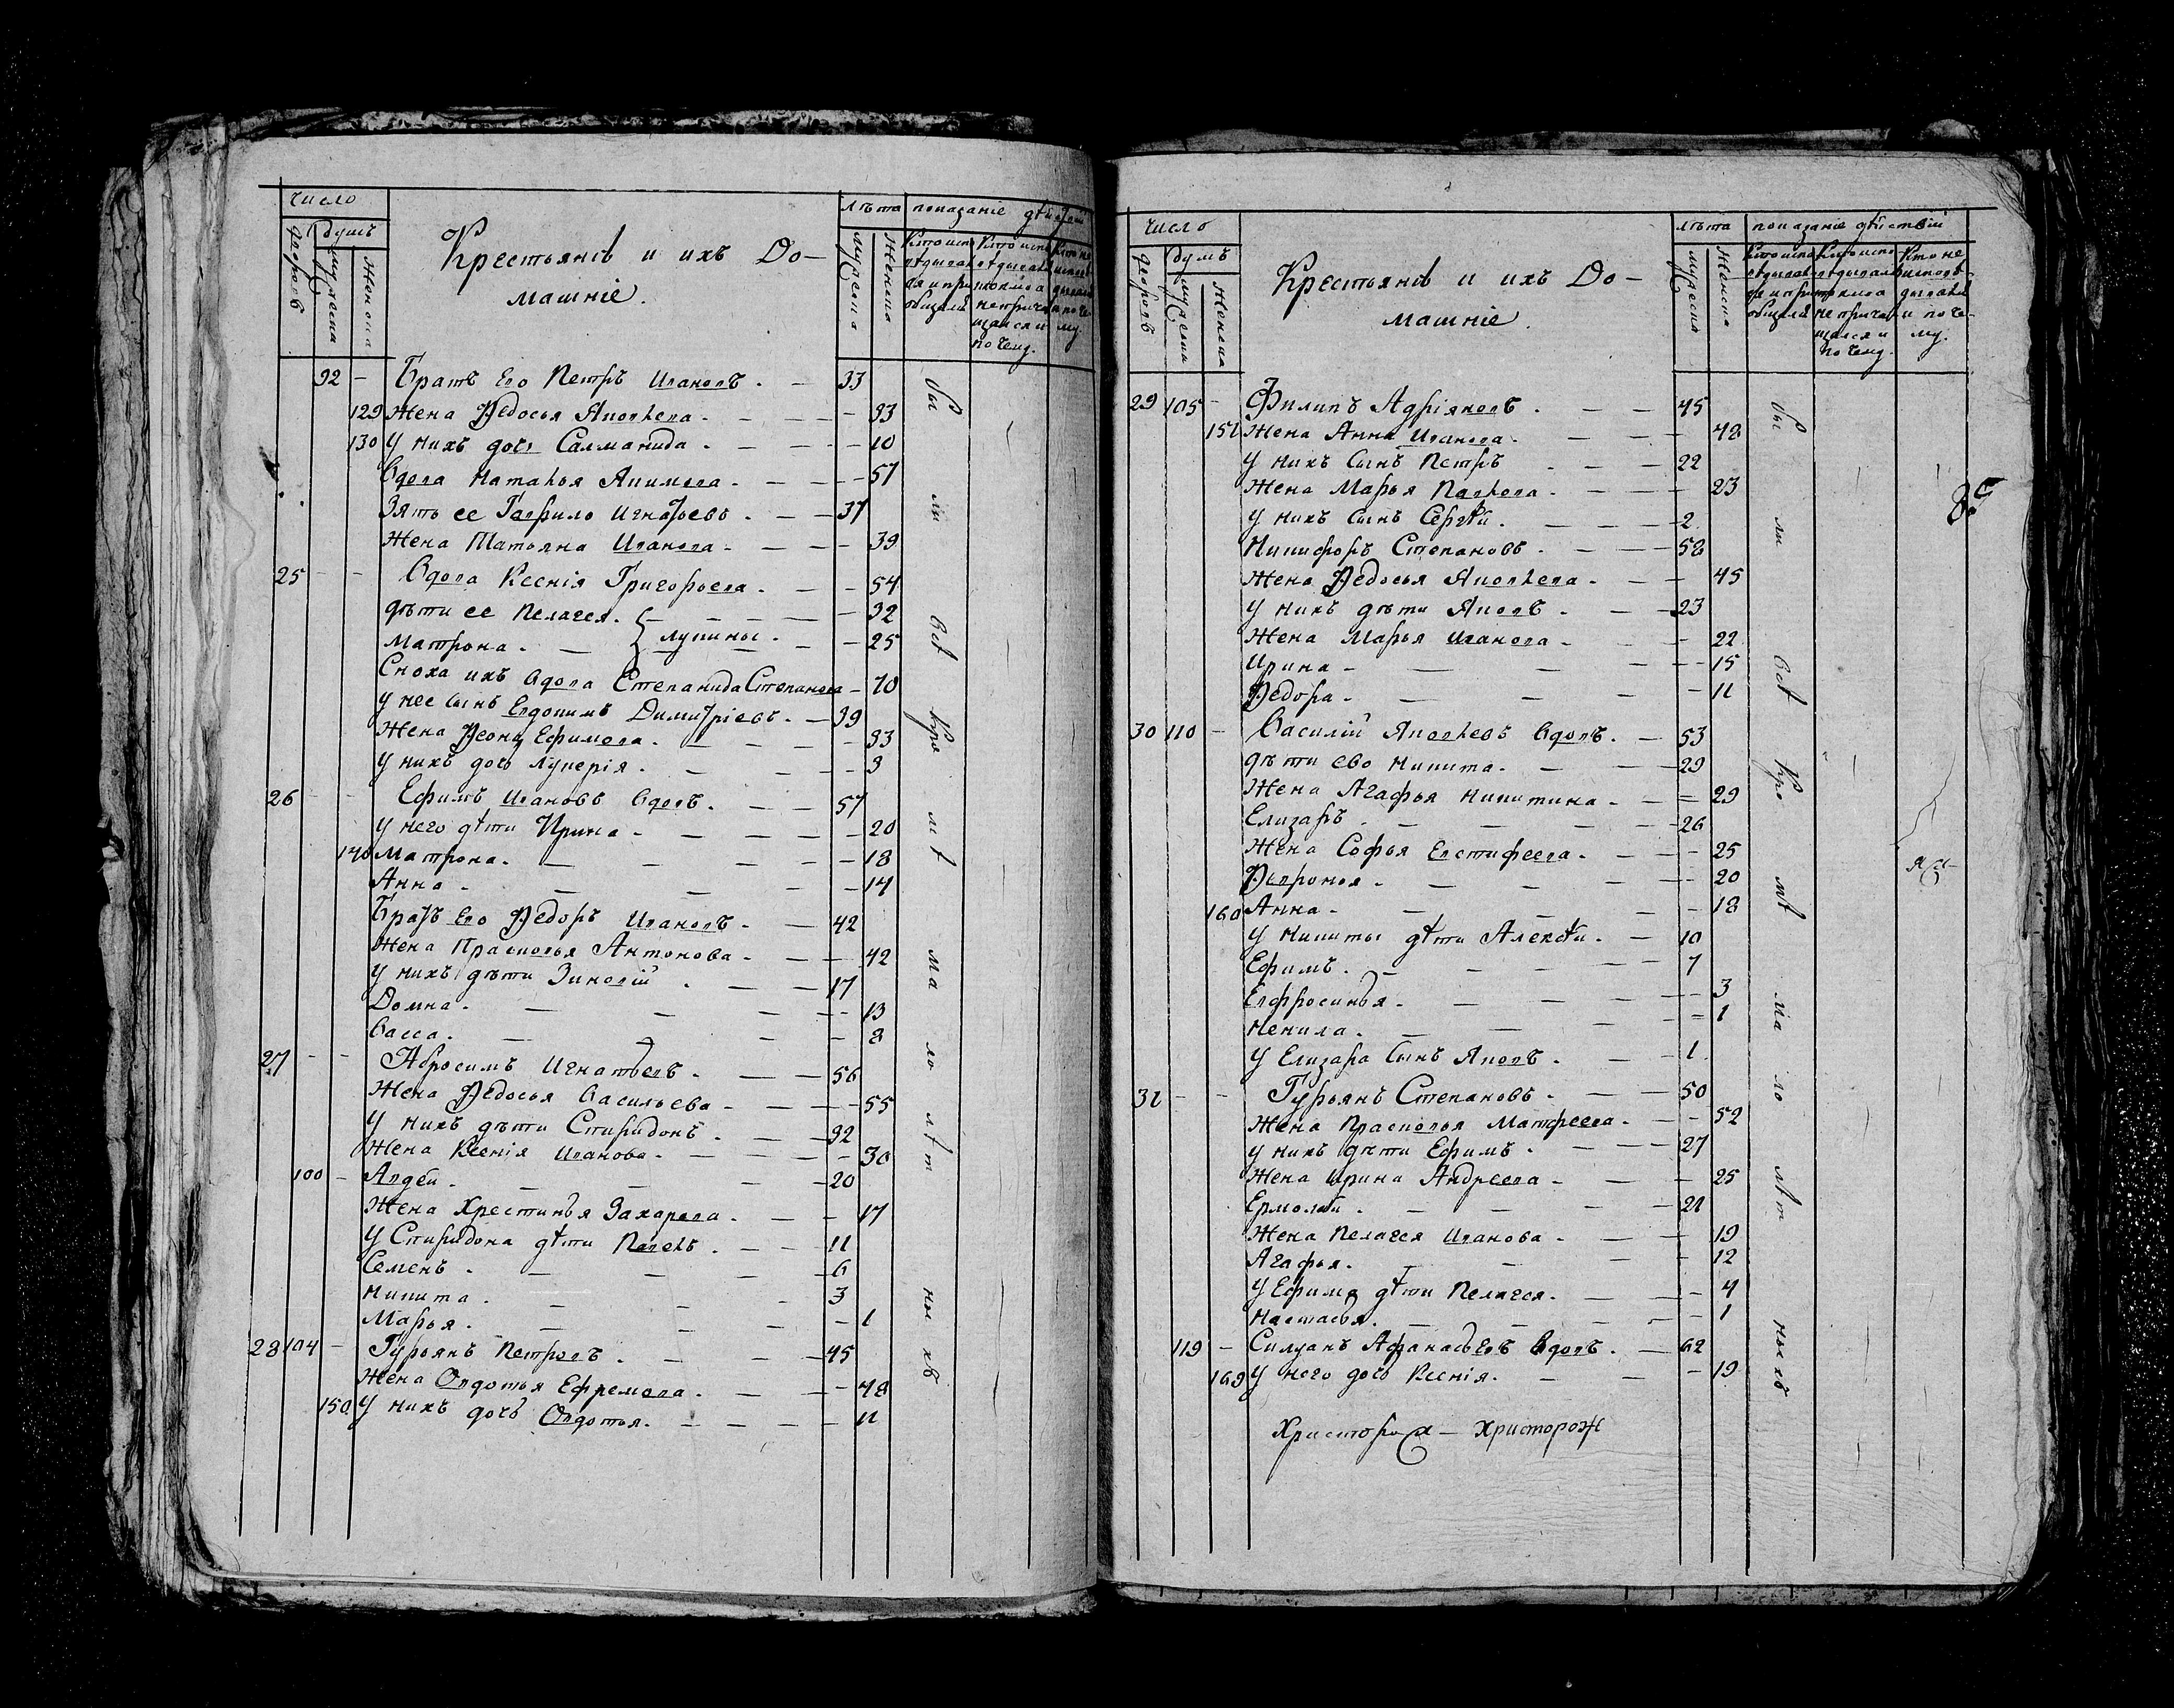 число
лѣта показаніе дѣйствій
дворовъ
душъ
мужеска
женска
Крестьянѣ и ихъ До-
машніе.
мужеска
женска
Кто испо
вѣдывал
ся и при
общалс
Кто испо
вѣдывалс
токмо а
не прича
щался и
по чему.
92 - Братъ Его Петръ Ивановъ. - 33
129 Жена Ѳедосья Яковлева. - - - - 33
130 У нихъ дочь Салманида. - - - - 10
Вдова Наталья Якимова. - - - - 57
Зять ее Гаврило Игнатьевъ. - - 37
Жена Татьяна Иванова. - - - - 39
25 - - Вдова Ксенія Григорьева. - - 54
дѣти ее Пелагея. - - - - 32
Матрона. - - - - 25
Сноха ихъ Вдова Степанида Степанова - 70
У нее сынъ Евдокимъ Димитріевъ. - 39
Жена Ѳеона Ефимова. - - - - 33
У нихъ дочь Лукерія. - - - - 3
26 - - Ефимъ Ивановъ Вдовъ. - - 57
У него дѣти Ирина - - - - - 20
140 Матрона. - - - - 18
Анна - - - - - 14
Братъ Его Ѳедоръ Ивановъ. - - 42
Жена Прасковья Антонова - - - 42
У нихъ дѣти Зиновій. - - 17
Домна. - - - - - 13
Васса. - - - - 8
27 - - Абросимъ Игнатьевъ. - - - 56
Жена Ѳедосья Васильева - - - - 55
У нихъ дѣти Спиридонъ. - - - 32
Жена Ксенія Иванова. - - - - - 30
100 - Авдей. - - - - 20
Жена Хрестинья Захарова. - - - 17
У Спиридона дѣти Павелъ. - - - 11
Семенъ. - - - - 6
Никита. - - - 3
Марья. - - - - 1
28 104 - Гурьянъ Петровъ. - - - 45
Жена Овдотья Ефремова. - - - - 48
150 У нихъ дочь Овдотья. - - - - 11
бы
ли
всѣ
кро
мѣ
ма
ло
лѣт
ны
хъ
число
лѣта показаніе дѣйствій
дворовъ
душъ
мужеска
женска
Крестьянѣ и ихъ До-
машніе.
мужеска
женска
Кто испо
вѣдывал
ся и при
общалс
Кто испо
вѣдывалс
токмо а
не прича
щался и
по чему.
Кто не
исповѣ-
дывался
и по че-
му.
29 105 - Филипъ Адріяновъ. - - 45
151 Жена Анна Иванова. - - - 48
У нихъ сынъ Петръ - - - 22
Жена Марья Павлова. - - - - 23
У нихъ сынъ Сергѣй. - - - 2
Никифоръ Степановъ. - - - 58
Жена Ѳедосья Яковлева. - - - 45
У нихъ дѣти Яковъ. - - - 23
Жена Марья Иванова - - - 22
Ирина - - - - - 15
Ѳедора. - - - - 11
30 110 - Василій Яковлевъ Вдовъ. - 53
дѣти ево Никита. - - - 29
Жена Агафья Никитина - - - 29
Елизаръ. - - - - - 26
Жена Софья Евстифеева. - - - 25
Ѳевронья. - - - - - 20
160 Анна - - - - - 18
У Никиты дѣти Алексѣй. - 10
Ефимъ. - - - - - 7
Евфросинья. - - - - - 3
Ненила. - - - - 1
У Елизара сынъ Яковъ. - - 1
31 - - Гурьянъ Степановъ. - - - 50
Жена Прасковья Матфеева. - - - 52
У нихъ дѣти Ефимъ. - - - 27
Жена Ирина Андреева - - - 25
Ермолай. - - - - 21
Жена Пелагея Иванова - - - 19
Агафья. - - - 12
У Ефима дѣти Пелагея. - - - 4
Настасья. - - - - - 1
119 - Силуанъ Афанасьевъ Вдовъ. - 62
169 У него дочь Ксенія. - - - 19
Христорож - Христорож
бы
ли
всѣ
кро
мѣ
ма
ло
лѣт
ныхъ